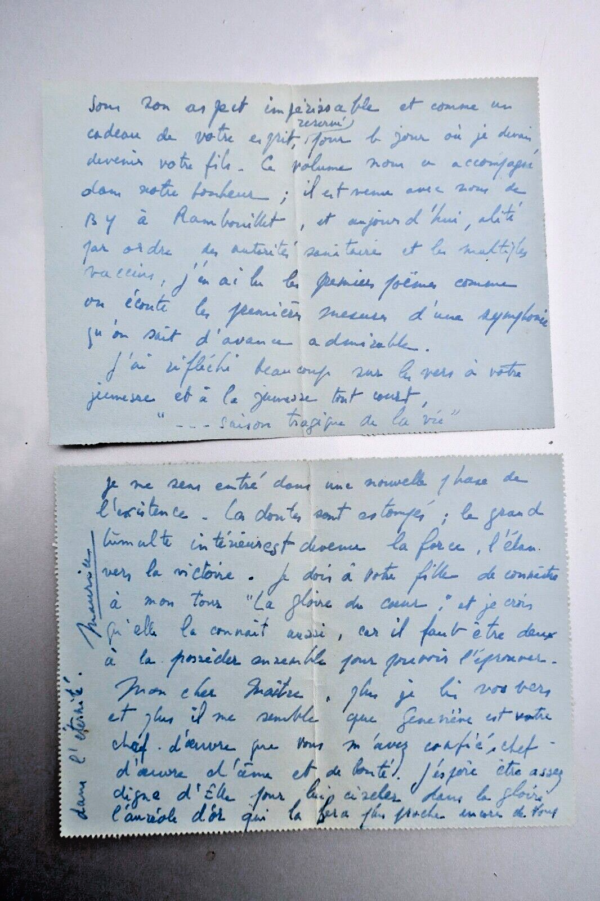 Sous son aspect impérissable et comme un
cadeau de votre esprit, reservé pour le jour où je devais
devenir votre fils. Ce volume nous a accompagné
dans notre bonheur ; il est venu avec nous de
By à Rambouillet, et aujourd'hui, alité
par ordre des autorités sanitaires et les multiples
vaccins, j'en ai lu les premiers poëmes comme
on écoute les premières mesures d'une symphonie
qu'on sait d'avance admirable.
J'ai réfléchi beaucoup sur les vers à votre
jeunesse et à la jeunesse tout court,
"--- saison tragique de la vie"
je me sens entré dans une nouvelle phase de
l'existence. Les doutes sont estompés ; le grand
tumulte intérieur est devenu la force, l'élan
vers la victoire. Je dois à votre fille de connaître
à mon tour "La gloire du cœur," et je crois
qu'elle la connait aussi, car il faut être deux
à la posséder ensemble pour pouvoir l'éprouver.
Mon cher Maître, plus je lis vos vers
et plus il me semble que Geneviève est votre
chef-d'œuvre que vous m'avez confié, chef-
d'œuvre d'âme et de bonté. J'espère être assez
digne d'Elle pour lui ciseler dans la gloire
l'auréole d'or qui la fera plus proche encore de vous
dans l'éternité. Maurice